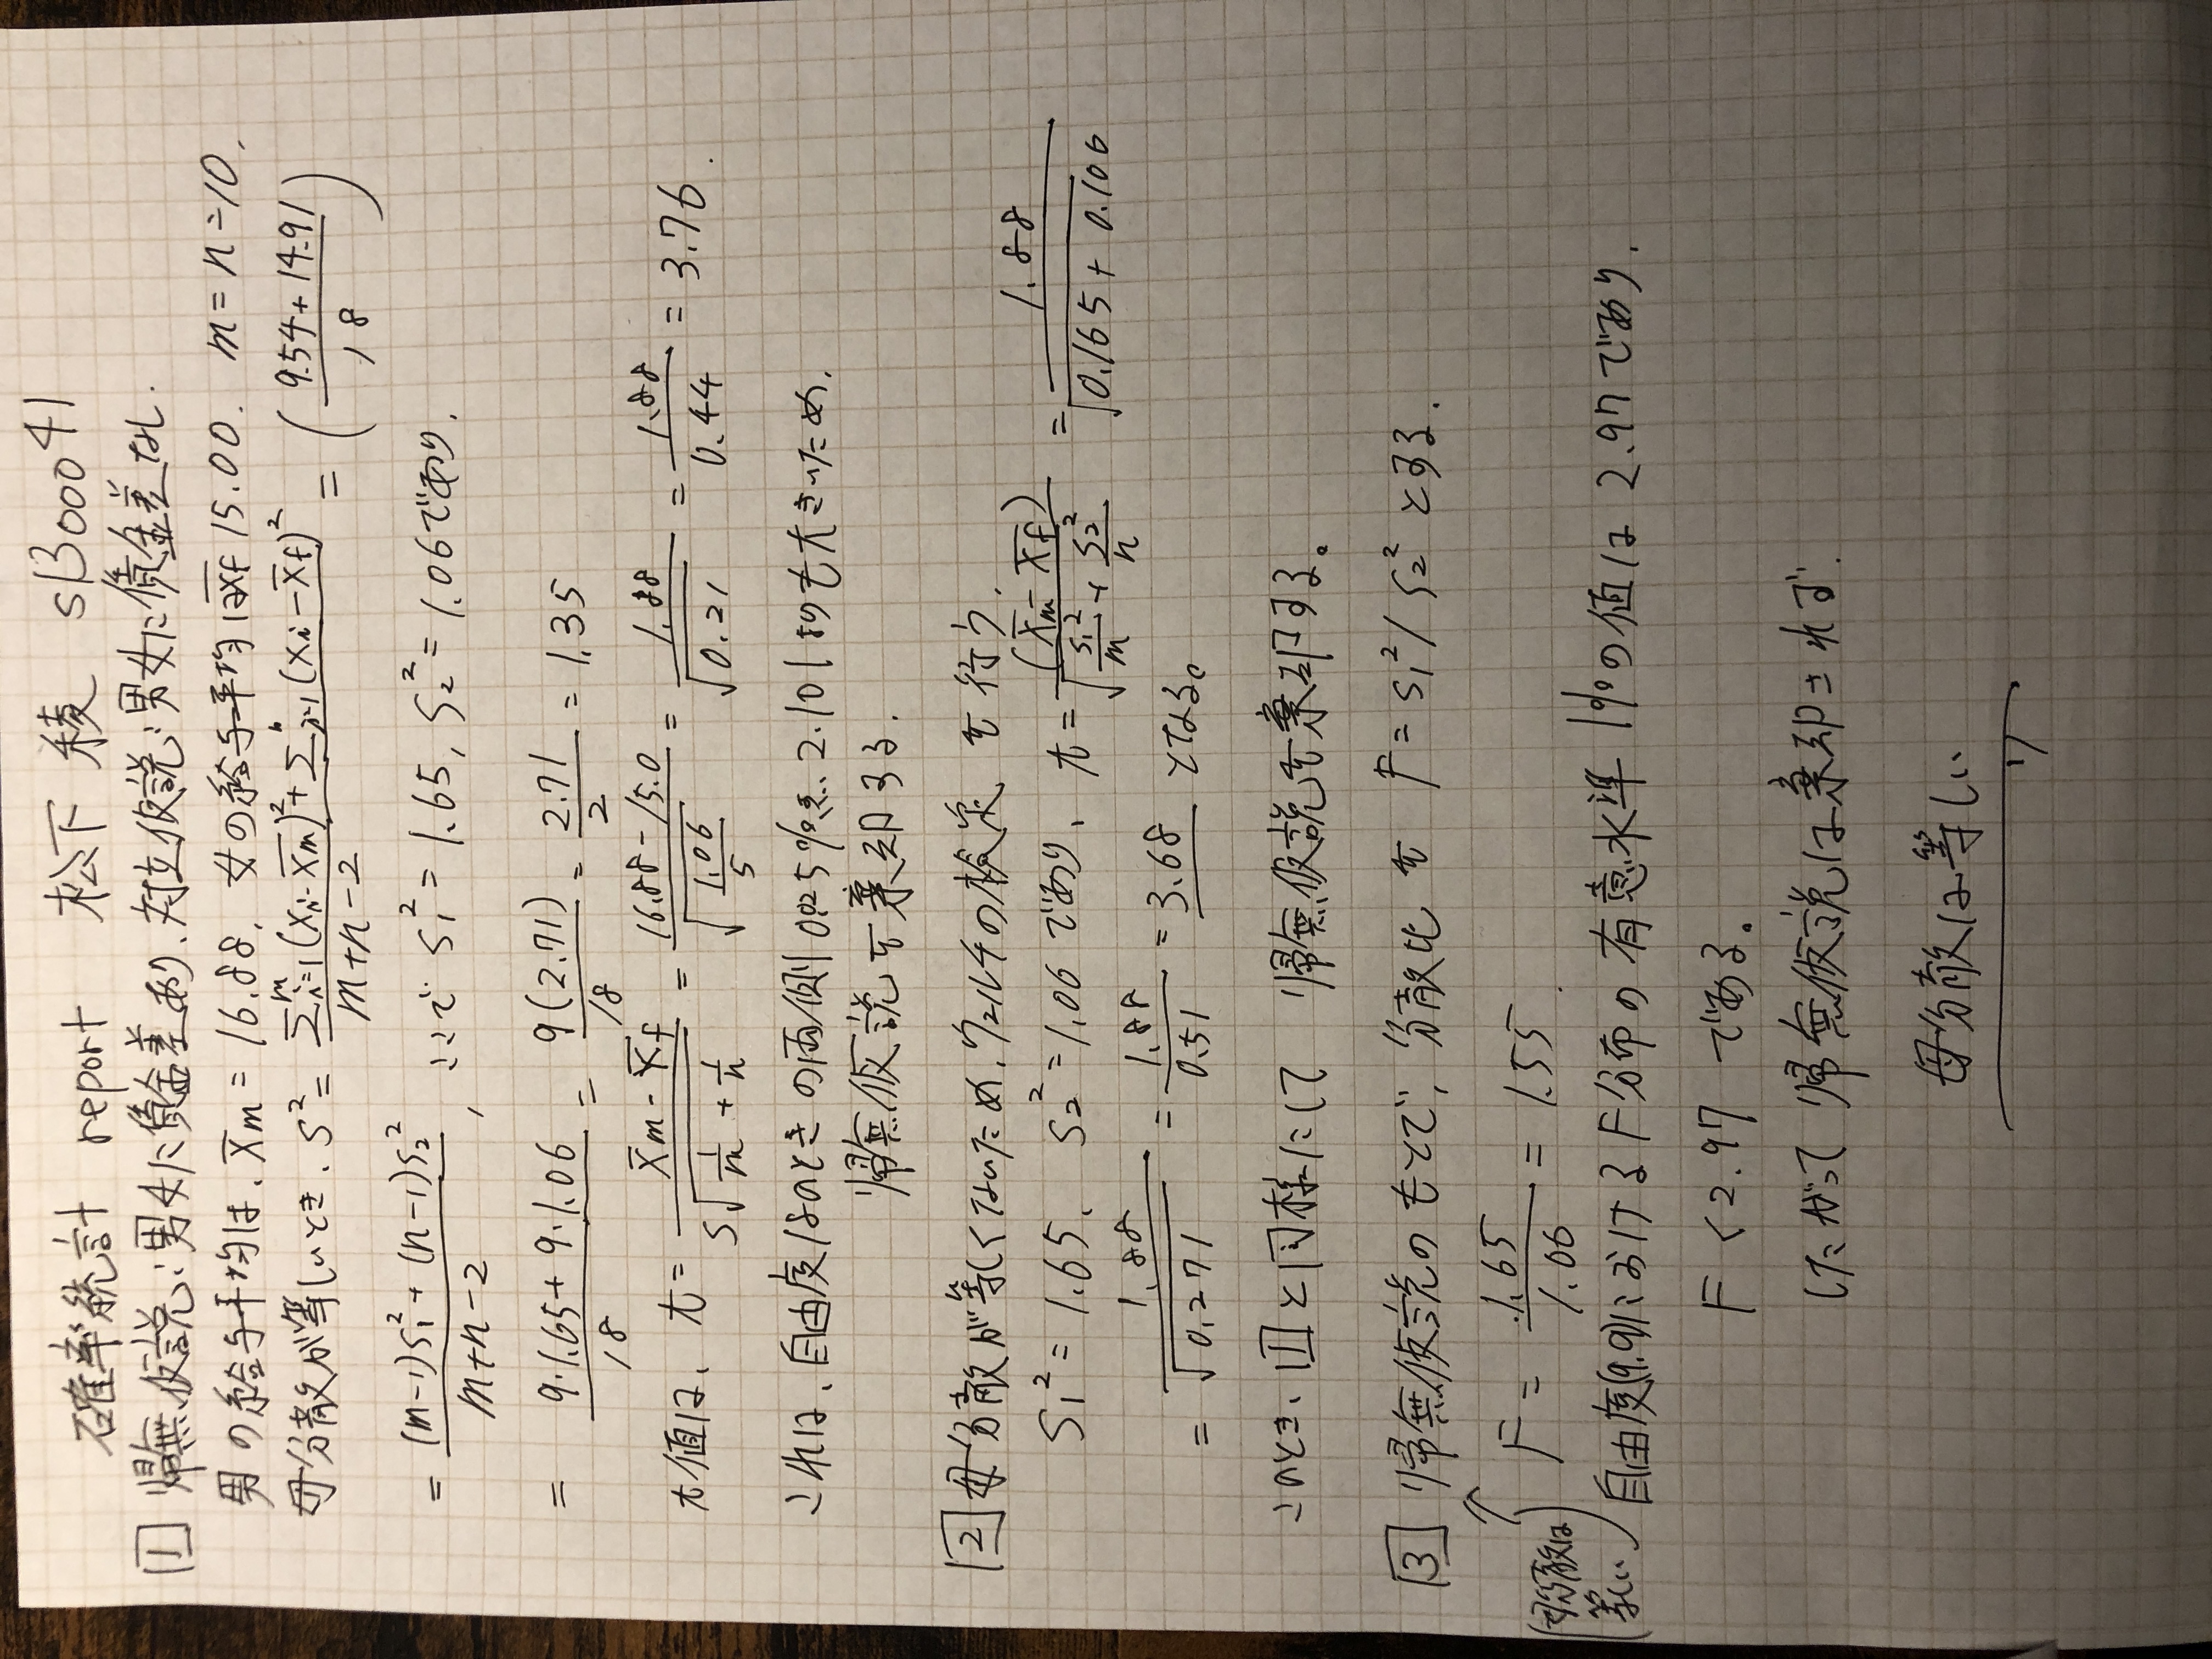 確率統計 report 松下 稜 s1300041
1 帰無仮説:男女に賃金差あり、対立仮説:男女に賃金差なし.
男の給与平均は、x̄m = 16.88, 女の給与平均は x̄f 15.00. m = n = 10,
母分散が等しいとき、S² = (Σᵢ₌₁ᵐ (xᵢ - x̄m)² + Σᵢ₌₁ⁿ (xᵢ - x̄f)²) / (m+n-2) = ((9.54 + 14.91) / 18)
= ((m-1)S₁² + (n-1)S₂²) / (m+n-2), ここで S₁² = 1.65, S₂² = 1.06であり,
= (9·1.65 + 9·1.06) / 18 = 9(2.71) / 18 = 2.71 / 2 = 1.35
t値は、t = (x̄m - x̄f) / (S√(1/m + 1/n)) = (16.88 - 15.0) / √(1.06/5) = 1.88 / √0.21 = 1.88 / 0.44 = 3.76.
これは、自由度18のときの両側0.025%点 2.101よりも大きいため,
帰無仮説を棄却する.
2 母分散が等しくないため、ウェルチの検定を行う.
S₁² = 1.65、S₂² = 1.06であり、t = (x̄m - x̄f) / √(S₁²/m + S₂²/n) = 1.88 / √(0.165 + 0.106)
= 1.88 / √0.271 = 1.88 / 0.51 = 3.68 となる。
このとき、1と同様にして 帰無仮説を棄却する。
3 帰無仮説のもとで, 分散比を F = S₁² / S₂² とする.
(母分散は等しい)
F = 1.65 / 1.06 = 1.55.
自由度(9.9)における F分布の有意水準 1%の値は 2.97であり,
F < 2.97 である。
したがって 帰無仮説は棄却されず.
母分散は等しい